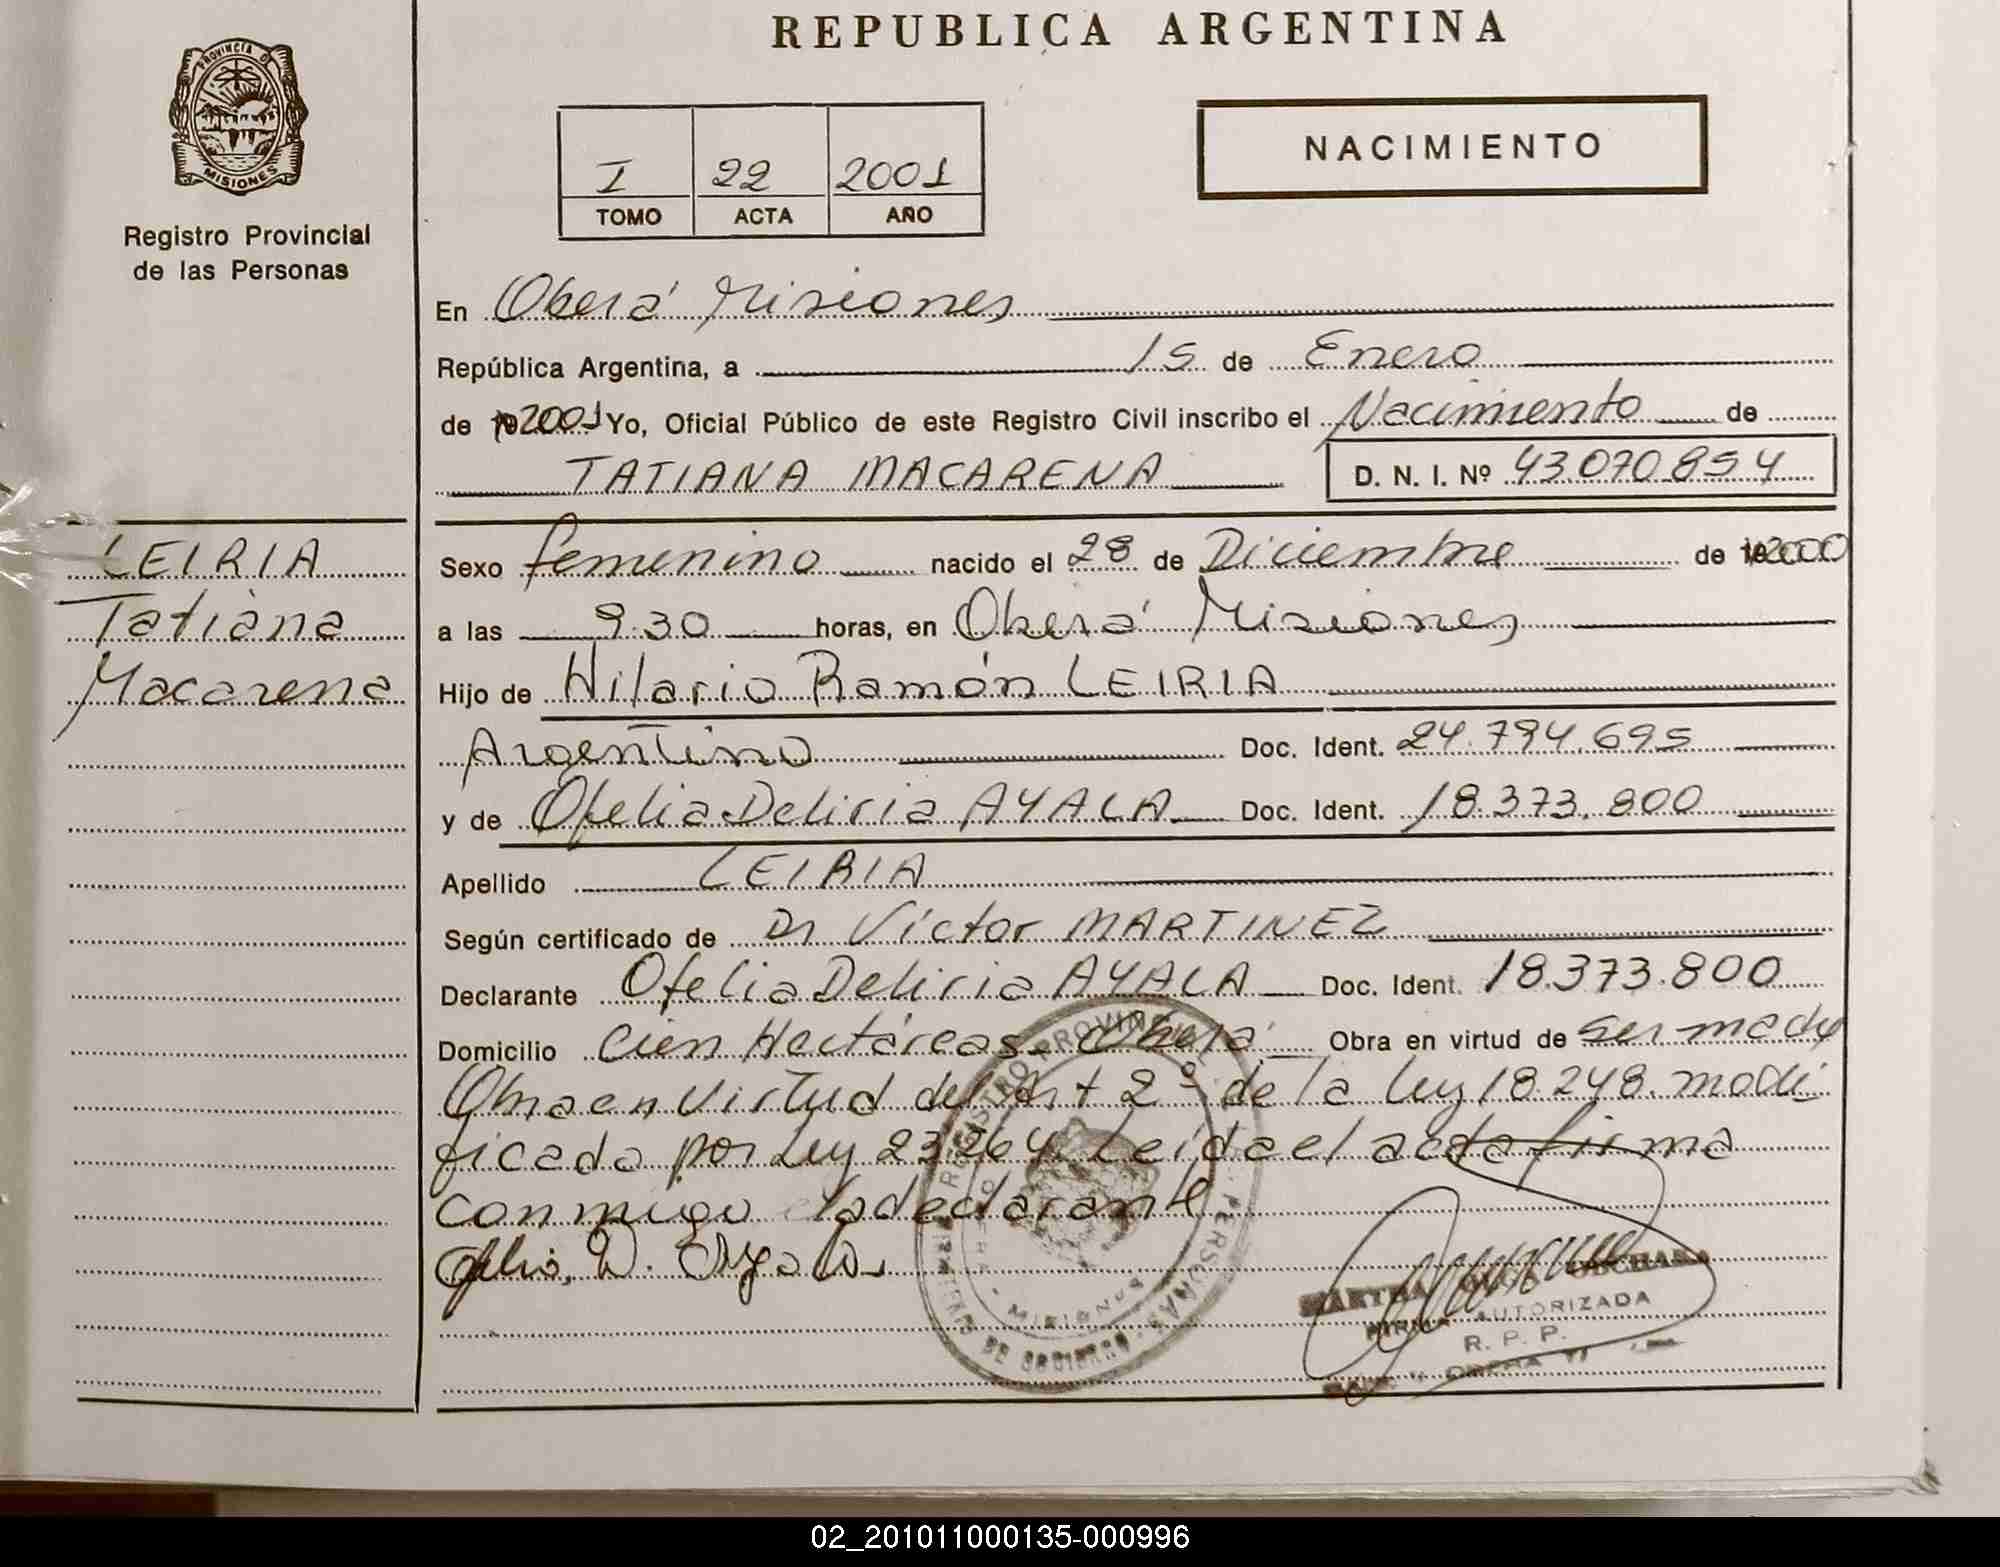 REPUBLICA ARGENTINA
PROVINCIA DE
MISIONES
Registro Provincial
de las Personas
I 22 2001
TOMO ACTA AÑO
NACIMIENTO
En Oberá Misiones
República Argentina, a 15 de Enero
de 2001 Yo, Oficial Público de este Registro Civil inscribo el Nacimiento de
TATIANA MACARENA D. N. I. Nº 43.070.854
LEIRIA
Tatiana
Macarena
Sexo femenino nacido el 28 de Diciembre de 2000
a las 9.30 horas, en Oberá Misiones
Hijo de Hilario Ramón LEIRIA
Argentino Doc. Ident. 24.794.695
y de Ofelia Deliria AYALA Doc. Ident. 18.373.800
Apellido LEIRIA
Según certificado de Dr Víctor MARTINEZ
Declarante Ofelia Deliria AYALA Doc. Ident. 18.373.800
Domicilio Cien Hectáreas - Oberá Obra en virtud de ser madre
Obra en virtud del Art 2º de la Ley 18.248. modi
ficado por Ley 23264 Leída el acta firma
conmigo la declarante
REGISTRO PROVINCIAL PERSONAS
MISIONES
AUTORIZADA
R. P. P.
02_201011000135-000996